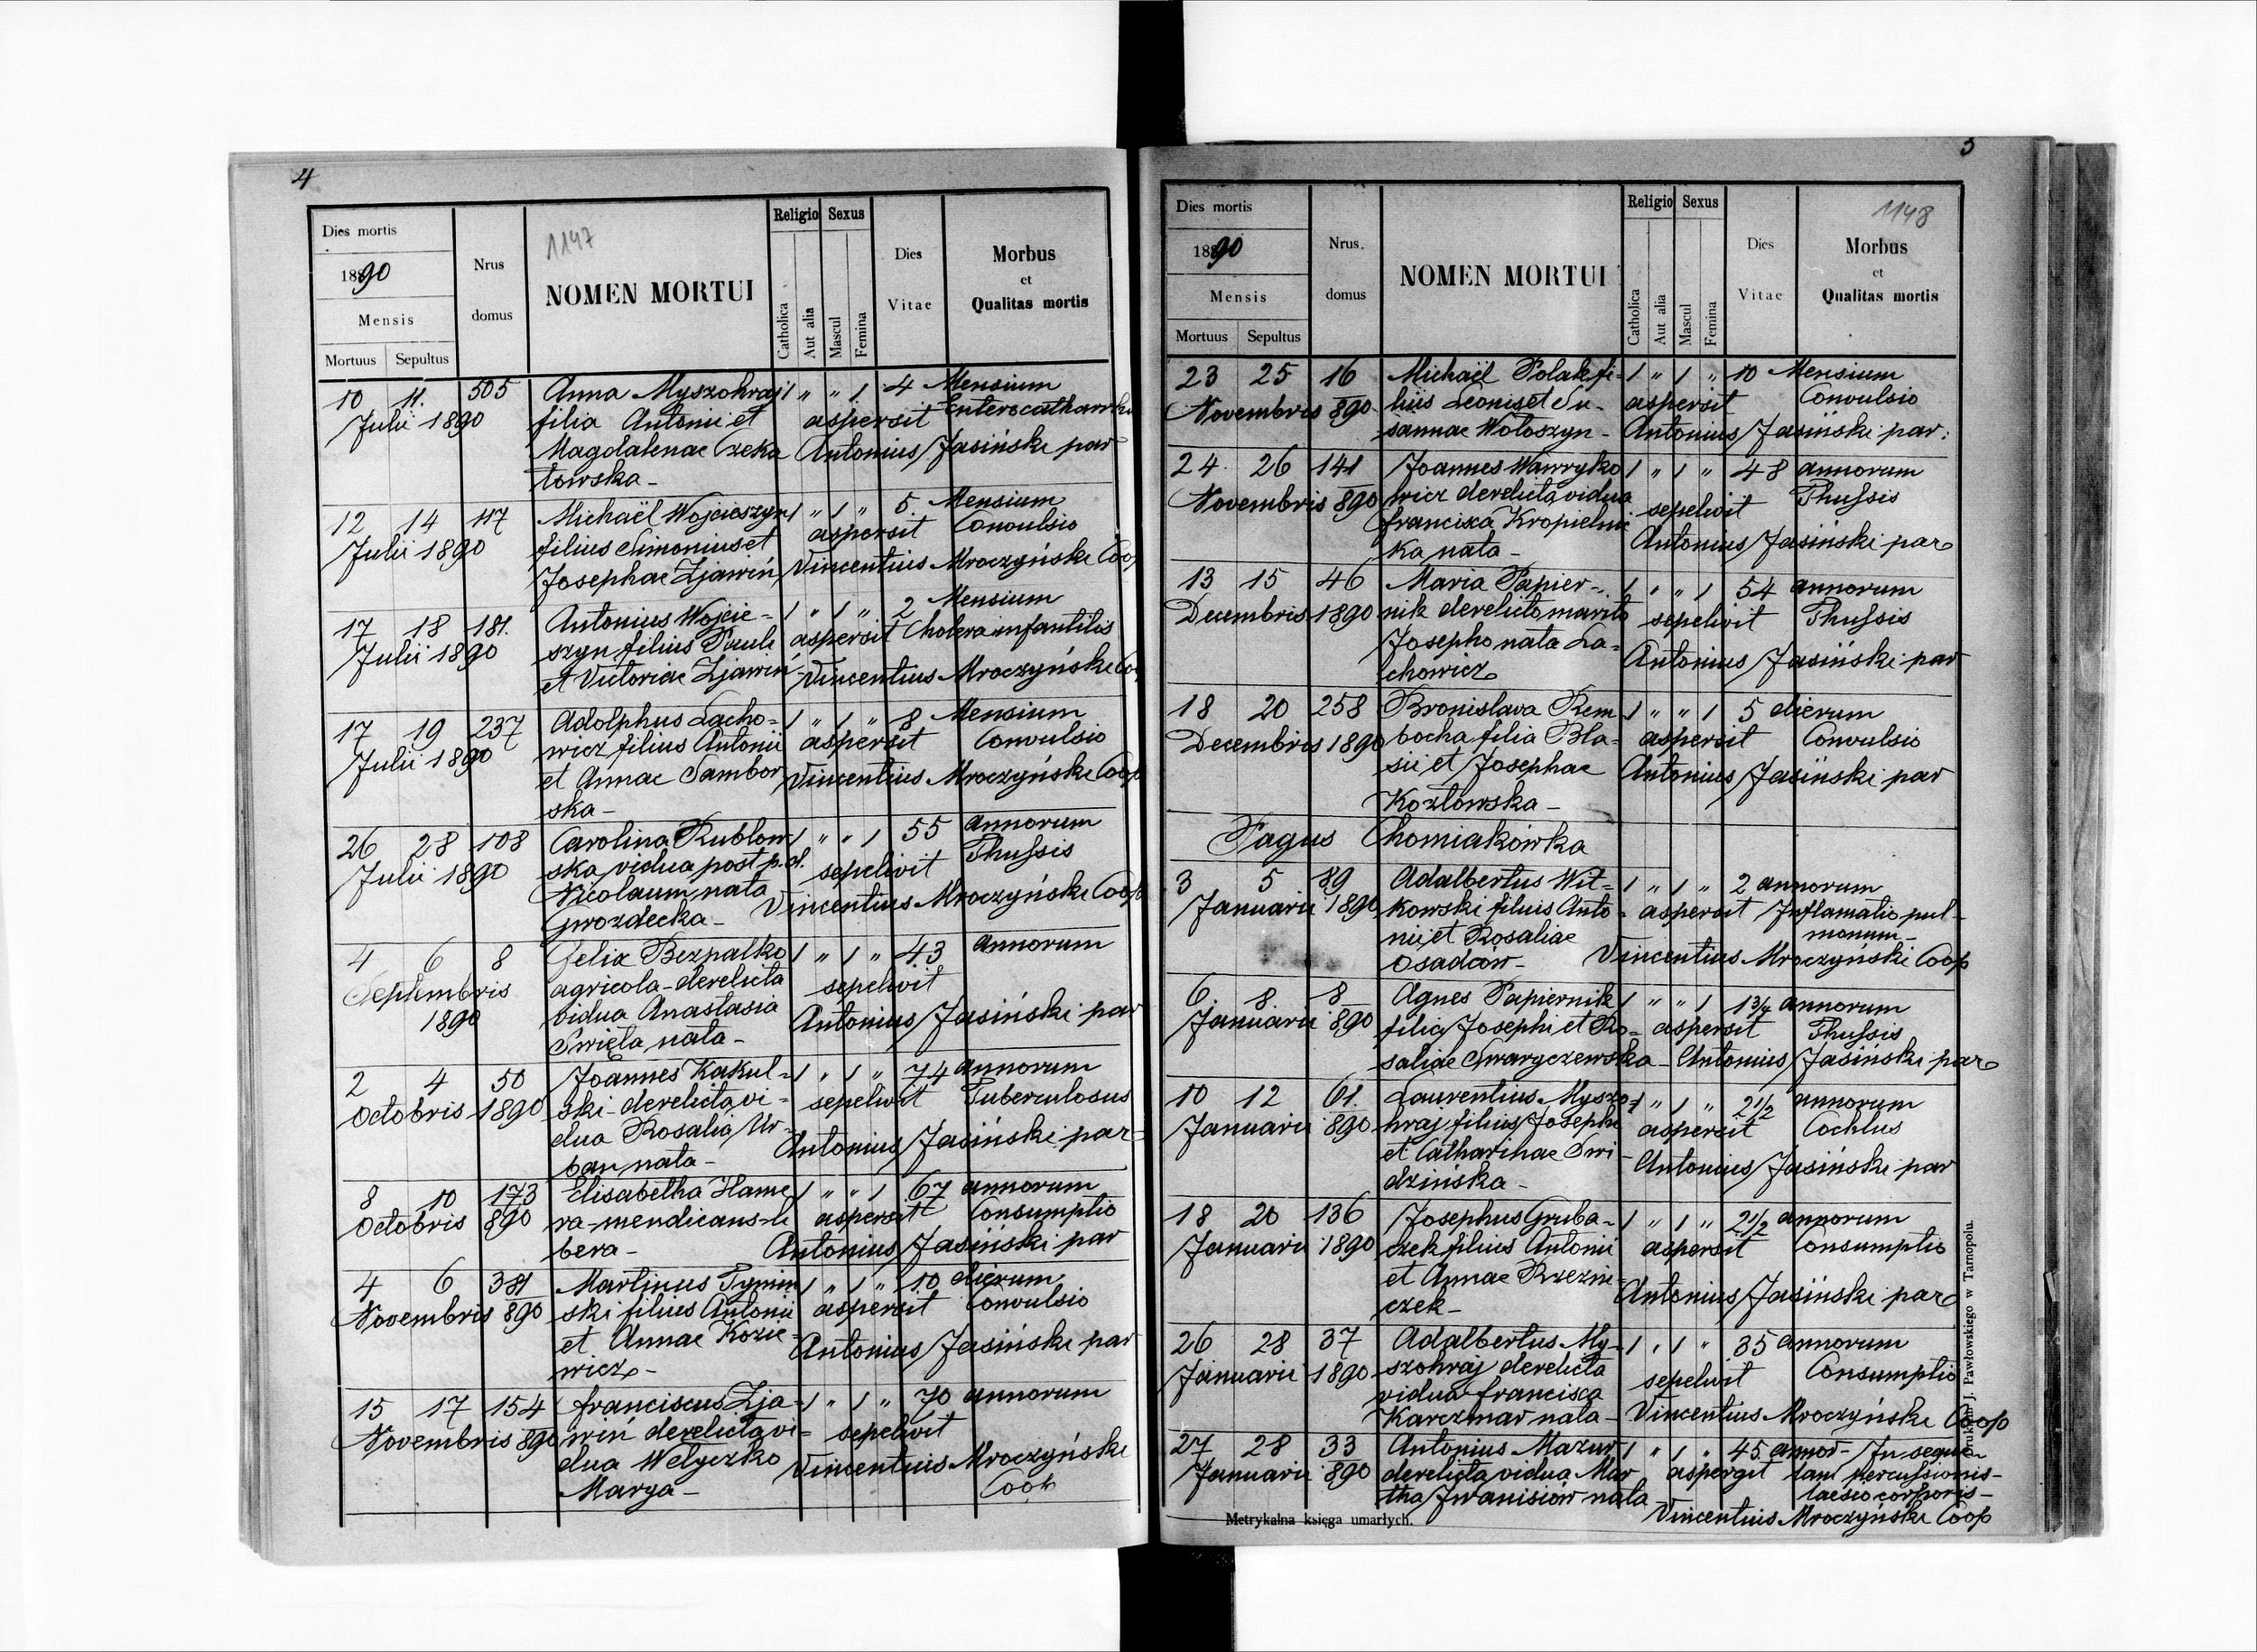 4
Dies mortis
1890
Mensis
Mortuus Sepultus
Nrus domus
1147
NOMEN MORTUI
Religio Sexus
Catholica Aut alia Mascul Femina
Dies Vitae
Morbus et Qualitas mortis
10 11. 505 Anna Myszohraj 1 " " 1 4 Mensium
Julii 1890 filia Antonii et aspersit Enterocatharrhus
Magdalenae Czeka Antonius Jasiński par
towska -
12 14 117 Michaël Wojcieszyn 1 " 1 " 5. Mensium
Julii 1890 filius Simonius et aspersit Convulsio
Josephae Zjawiń Vincentius Mroczyński Coop
17 18 181. Antonius Wojcie= 1 " 1 " 2 Mensium
Julii 1890 szyn filius Pauli aspersit Cholera infantilis
et Victoriae Zjawiń Vincentius Mroczyński Coop
17 19 237 Adolphus Lacho= 1 " 1 " 8 Mensium
Julii 1890 wicz filius Antonii aspersit Convulsio
et Annae Sambor Vincentius Mroczyński Coop
ska -
26 28 108 Carolina Rublow 1 " " 1 55 annorum
Julii 1890 ska vidua post p. d. sepelivit Thussis
Nicolaum nata Vincentius Mroczyński Coop
Gwozdecka -
4 6 8 Felix Bezpalko 1 " 1 " 43 annorum
Septembris agricola - derelicta sepelivit
1890 vidua Anastasia Antonius Jasiński par
Swięta nata -
2 4 50 Joannes Kakul= 1 " 1 " 74 annorum
Octobris 1890 ski - derelicta vi= sepelivit Tuberculosus
dua Rosalia Ur- Antonius Jasiński par
ban nata -
8 10 173 Elisabetha Hame 1 " " 1 67 annorum
Octobris 890 ra - mendicans - li aspersit Consumptio
bera - Antonius Jasiński par
4 6 381 Martinus Tymin 1 " 1 " 10 dierum
Novembris 890 ski filius Antonii aspersit Convulsio
et Annae Kozie- Antonius Jasiński par
wicz -
15 17 154 Franciscus Zja- 1 " 1 " 70 annorum
Novembris 890 wiń derelicta vi= sepelivit
dua Welyczko Vincentius Mroczyński
Marya - Coop
5
Dies mortis
1890
Mensis
Mortuus Sepultus
Nrus. domus
NOMEN MORTUI
Religio Sexus
Catholica Aut alia Mascul Femina
Dies Vitae
1148
Morbus et Qualitas mortis
23 25 16 Michaël Polak fi- 1 " 1 " 10 Mensium
Novembris 890 lius Leonis et Su- aspersit Convulsio
sannae Wołoszyn - Antonius Jasiński par.
24 26 141 Joannes Wawryko 1 " 1 " 48 annorum
Novembris 890 wicz derelicta vidua sepelivit Thussis
Francisca Kropielnic Antonius Jasiński par
ka nata -
13 15 46 Maria Papier- 1 " " 1 54 annorum
Decembris 1890 nik derelicto marito sepelivit Thussis
Josepho nata La= Antonius Jasiński par
chowicz
18 20 258 Bronislava Rem 1 " " 1 5 dierum
Decembris 1890 bocha filia Bla- aspersit Convulsio
sii et Josephae Antonius Jasiński par
Kozłowska -
Pagus Chomiakówka
3 5 89 Adalbertus Wit= 1 " 1 " 2 annorum
Januarii 1890 kowski filuis Anto- aspersit Inflamatio pul-
nii et Rosaliae monum -
Osadców - Vincentius Mroczyński Coop
6. 8. 8 Agnes Papiernik 1 " " 1 1 3/4 annorum
Januarii 890 filia Josephi et Ro= aspersit Thussis
saliae Swaryczewska - Antonius Jasiński par
10 12 61. Laurentius Myszo= 1 " 1 " 2 1/2 annorum
Januarii 890 hraj filius Josephi aspersit Cochlus
et Catharinae Swi- Antonius Jasiński par
dzińska -
18 20 136 Josephus Gruba- 1 " 1 " 2 1/2 annorum
Januarii 1890 czek filius Antonii aspersit Consumptio
et Annae Rzezni- Antonius Jasiński par
czek -
26 28 37 Adalbertus My- 1 " 1 " 35 annorum
Januarii 1890 szohraj derelicta sepelivit Consumptio
vidua Francisca
Karczmar nata - Vincentius Mroczyński Coop
27 28 33 Antonius Mazur 1 " 1 " 45 annor - In sequen
Januarii 890 derelicta vidua Mar aspergit tam percussionis -
tha Iwanisiów nata laesio corporis -
Vincentius Mroczyński Coop
Metrykalna księga umarłych.
J. Pawłowskiego w Tarnopolu.